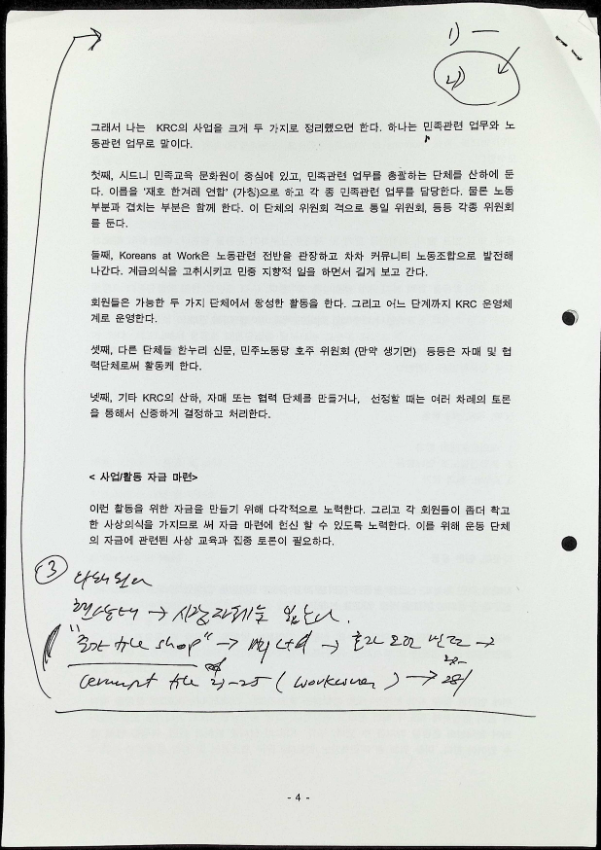 1) —
2)
그래서 나는 KRC의 사업을 크게 두 가지로 정리했으면 한다. 하나는 민족관련 업무와 노
동관련 업무로 말이다.
첫째, 시드니 민족교육 문화원이 중심에 있고, 민족관련 업무를 총괄하는 단체를 산하에 둔
다. 이름을 '재호 한겨레 연합' (가칭)으로 하고 각 종 민족관련 업무를 담당한다. 물론 노동
부분과 겹치는 부분은 함께 한다. 이 단체의 위원회 격으로 통일 위원회, 등등 각종 위원회
를 둔다.
둘째, Koreans at Work은 노동관련 전반을 관장하고 차차 커뮤니티 노동조합으로 발전해
나간다. 계급의식을 고취시키고 민중 지향적 일을 하면서 길게 보고 간다.
회원들은 가능한 두 가지 단체에서 왕성한 활동을 한다. 그리고 어느 단계까지 KRC 운영체
계로 운영한다.
셋째, 다른 단체들 한누리 신문, 민주노동당 호주 위원회 (만약 생기면) 등등은 자매 및 협
력단체로써 활동케 한다.
넷째, 기타 KRC의 산하, 자매 또는 협력 단체를 만들거나, 선정할 때는 여러 차례의 토론
을 통해서 신중하게 결정하고 처리한다.
< 사업/활동 자금 마련>
이런 활동을 위한 자금을 만들기 위해 다각적으로 노력한다. 그리고 각 회원들이 좀더 확고
한 사상의식을 가지므로 써 자금 마련에 헌신 할 수 있도록 노력한다. 이를 위해 운동 단체
의 자금에 관련된 사상 교육과 집중 토론이 필요하다.
3
→ 시장자체는 있는다.
tile shop" →
tile
- 4 -